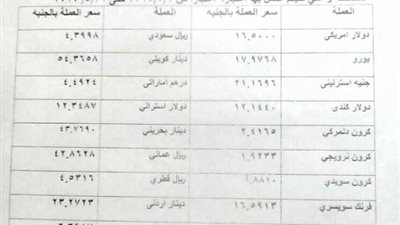 العملة سعر العملة بالجنيه العملة سعر العملة بالجنيه
دولار امريكي ١٦.٥٠٠٠ ريال سعودي ٤.٣٩٩٨
يورو ١٧.٩٧٦٨ دينار كويتي ٥٤.٣٦٥٨
جنيه استرليني ٢١.١٦٩٦ درهم اماراتي ٤.٤٩٢٤
دولار كندى ١٢.١٤٤٠ دولار استرالي ١٢.٣٤٨٧
كرون دنمركي ٢.٤١٦٥ دينار بحريني ٤٣.٧٦٩٠
كرون نرويجي ١.٩٢٣٣ ريال عماني ٤٢.٨٦٢٨
كرون سويدي ريال قطري ٤.٥٣١٦
فرنك سويسري ١٦.٥٩١٣ دينار اردنى ٢٣.٢٧٢٣